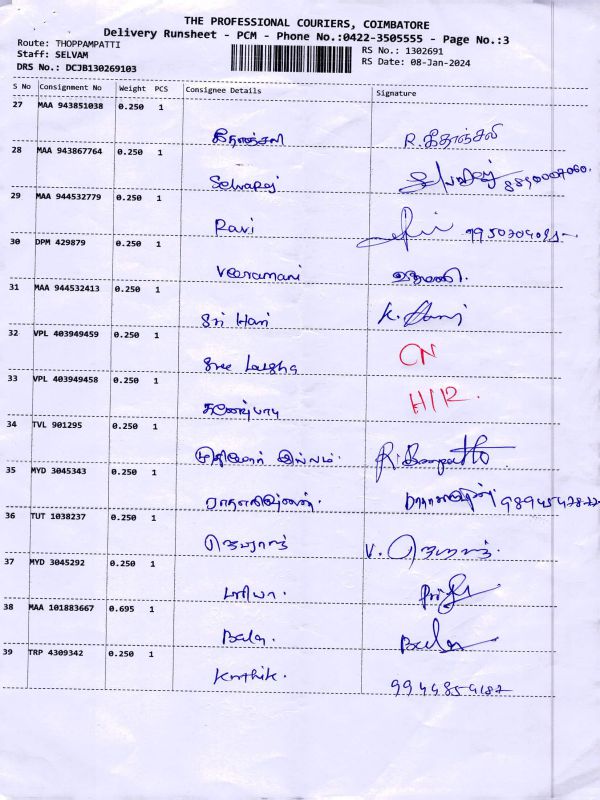 THE PROFESSIONAL COURIERS, COIMBATORE
Delivery Runsheet - PCM - Phone No.:0422-3505555 - Page No.:3
Route: THOPPAMPATTI
Staff: SELVAM
DRS No.: DCJB130269103
RS No.: 1302691
RS Date: 08-Jan-2024
S No Consignment No Weight PCS Consignee Details Signature
27 MAA 943851038 0.250 1
கீதாஞ்சலி R. கீதாஞ்சலி
28 MAA 943867764 0.250 1
Selvaraj
29 MAA 944532779 0.250 1
Ravi
30 DPM 429879 0.250 1
Veeramani
31 MAA 944532413 0.250 1
Sri Hari K.
32 VPL 403949459 0.250 1
Sree CN
33 VPL 403949458 0.250 1
H/12.
34 TVL 901295 0.250 1
முதியோர் இல்லம்.
35 MYD 3045343 0.250 1
ராதாகிருஷ்ணன்.
36 TUT 1038237 0.250 1
ஜெயராஜ் V. ஜெயராஜ்
37 MYD 3045292 0.250 1
பிரியா. Priya
38 MAA 101883667 0.695 1
Bala. Bala
39 TRP 4309342 0.250 1
Karthik. 9944859187